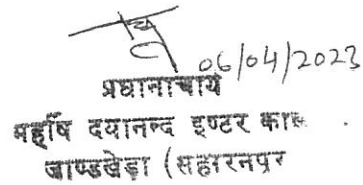 06/04/2023
प्रधानाचार्य
महर्षि दयानन्द इण्टर का
जाण्डखेड़ा (सहारनपुर